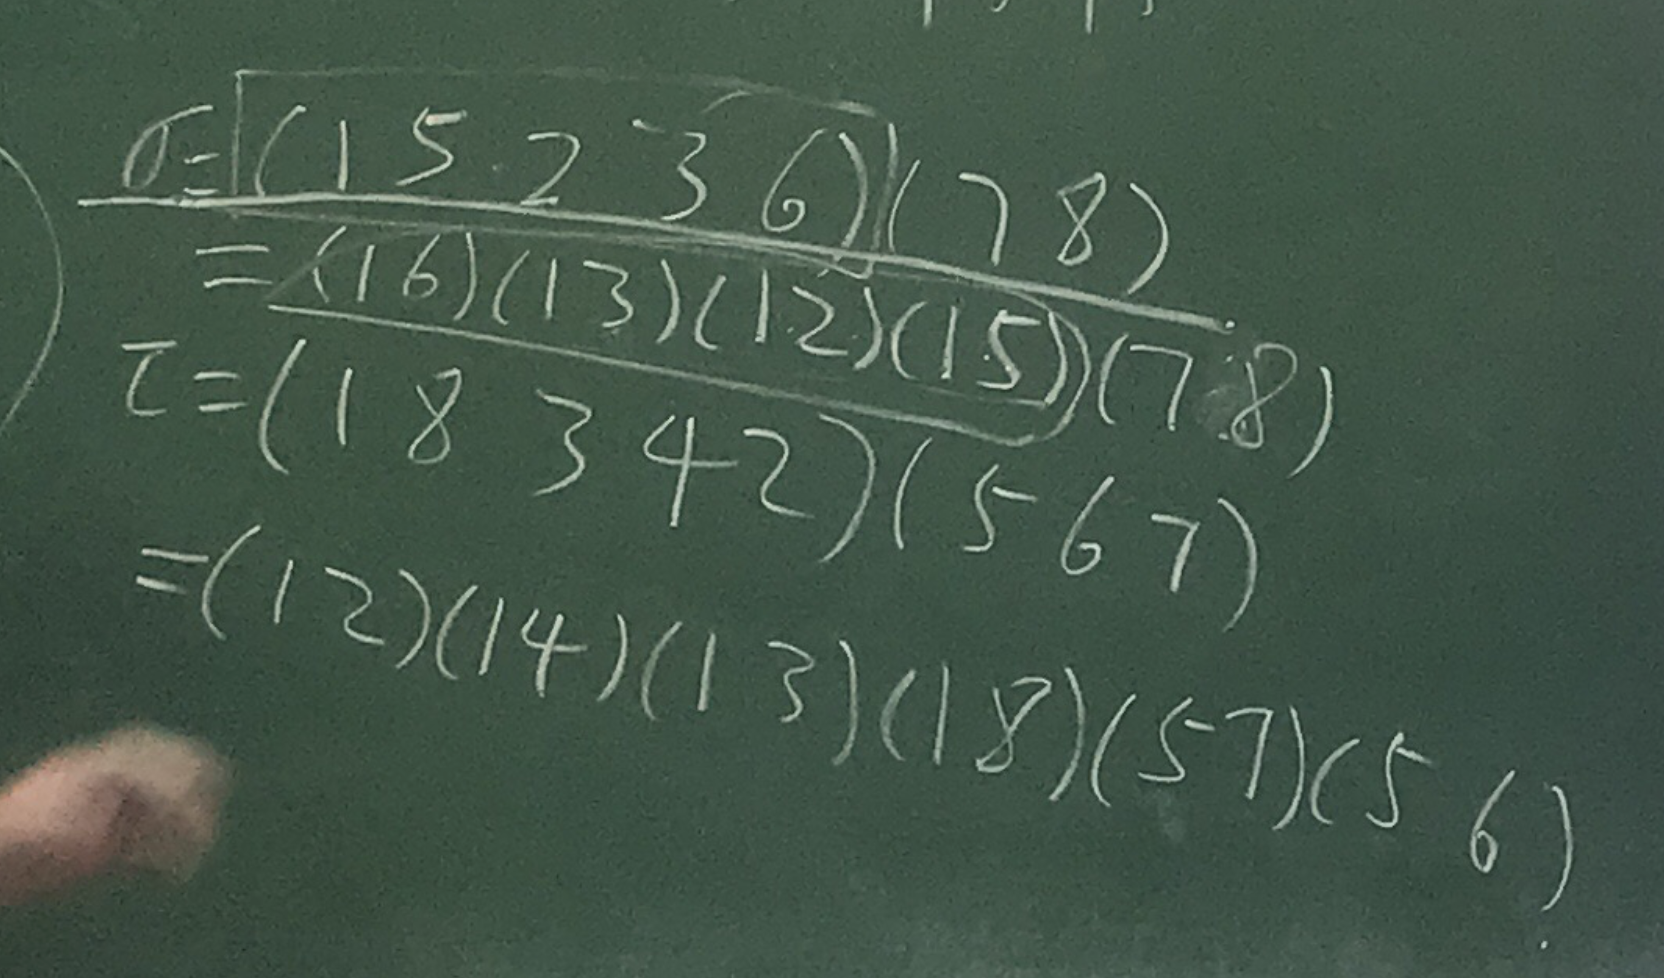 σ=(1 5 2 3 6)(7 8)
=(16)(13)(12)(15)(7 8)
τ=(1 8 3 4 2)(5 6 7)
=(12)(14)(1 3)(18)(57)(5 6)